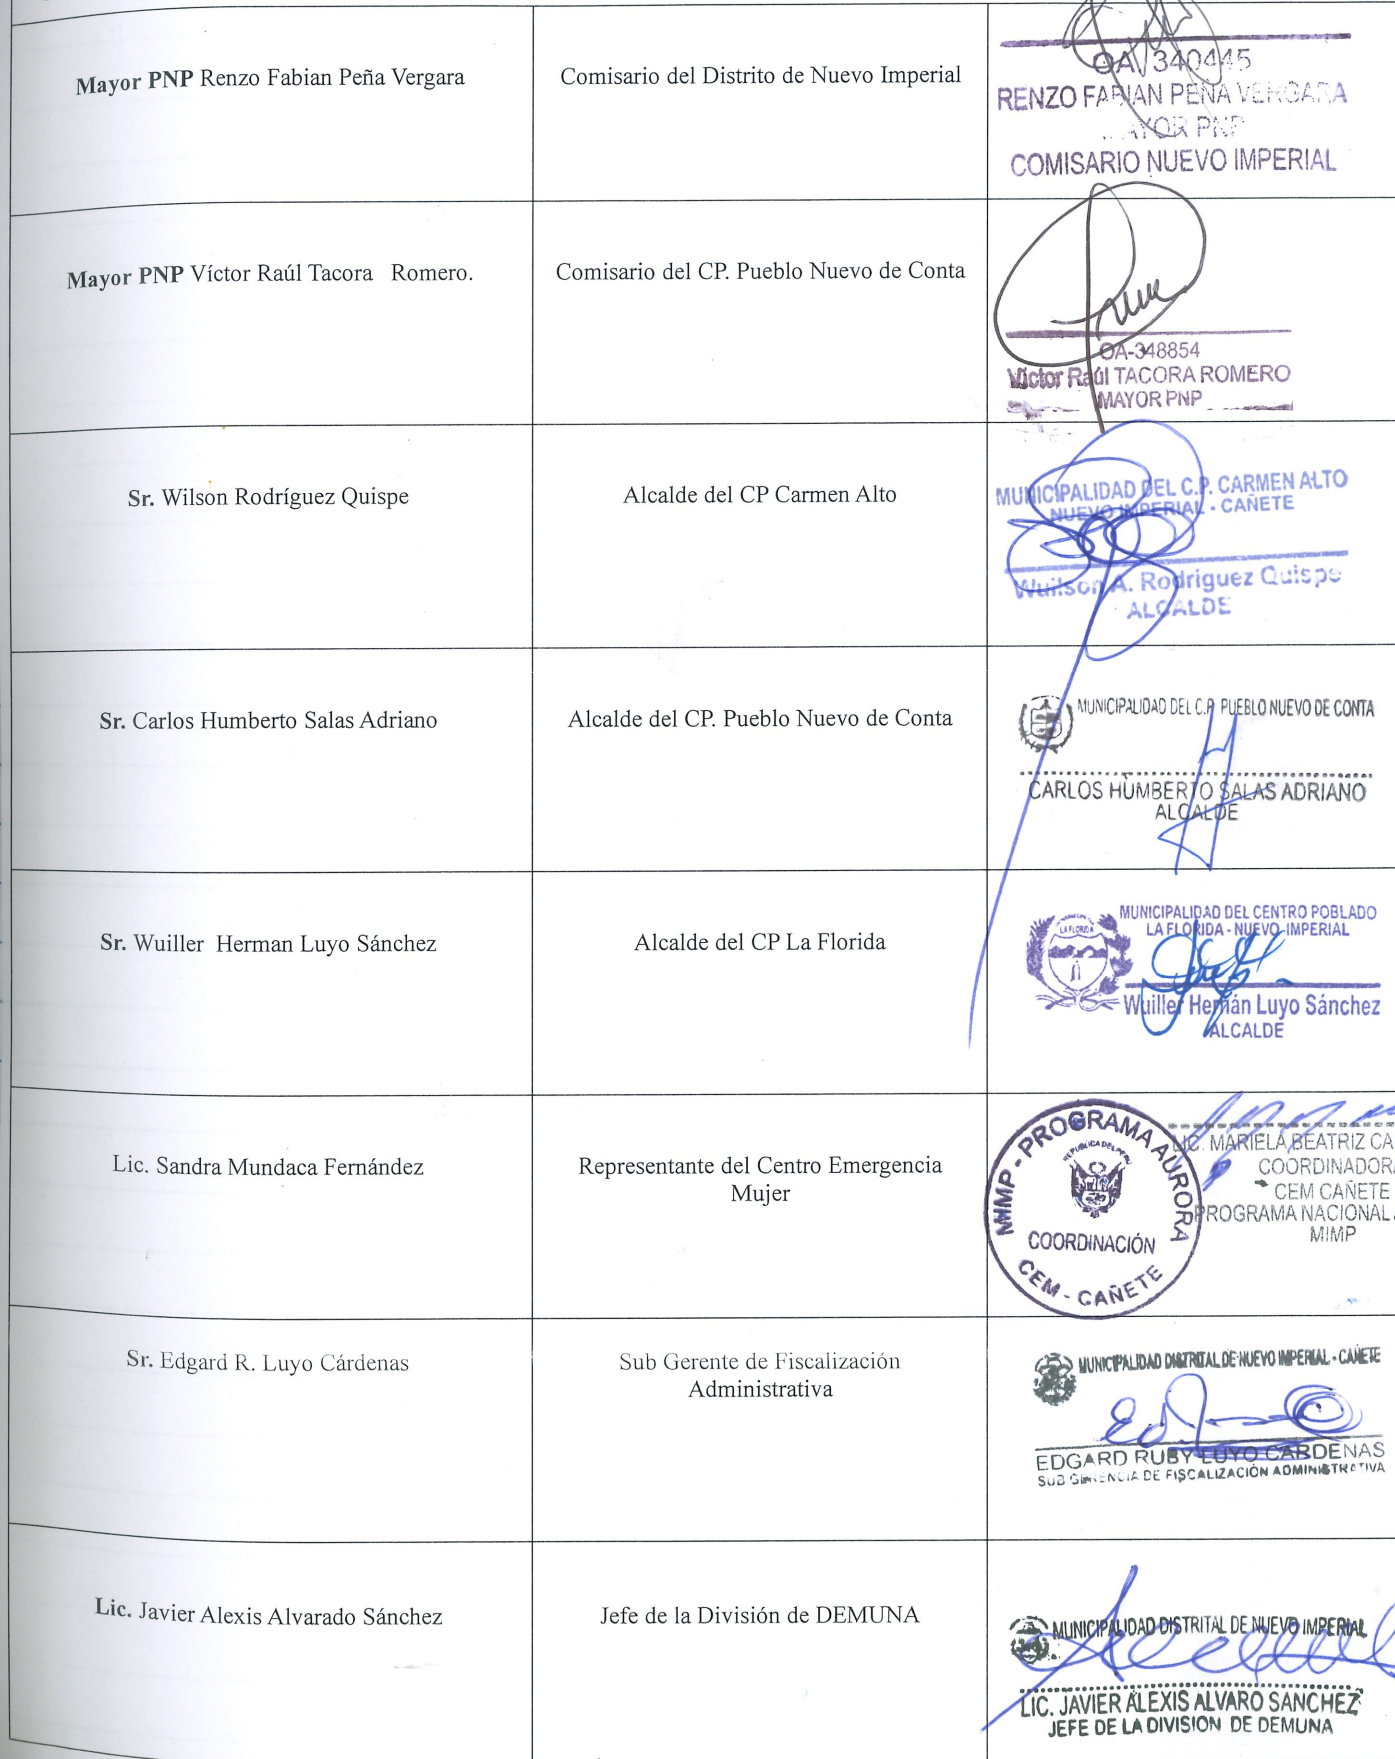 Mayor PNP Renzo Fabian Peña Vergara
Comisario del Distrito de Nuevo Imperial
OA 340445
RENZO FABIAN PEÑA VERGARA
MAYOR PNP
COMISARIO NUEVO IMPERIAL
Mayor PNP Víctor Raúl Tacora Romero.
Comisario del CP. Pueblo Nuevo de Conta
OA-348854
Víctor Raúl TACORA ROMERO
MAYOR PNP
Sr. Wilson Rodríguez Quispe
Alcalde del CP Carmen Alto
MUNICIPALIDAD DEL C.P. CARMEN ALTO
NUEVO IMPERIAL - CAÑETE
Wuilson A. Rodriguez Quispe
ALCALDE
Sr. Carlos Humberto Salas Adriano
Alcalde del CP. Pueblo Nuevo de Conta
MUNICIPALIDAD DEL C.P. PUEBLO NUEVO DE CONTA
CARLOS HUMBERTO SALAS ADRIANO
ALCALDE
Sr. Wuiller Herman Luyo Sánchez
Alcalde del CP La Florida
LA FLORIDA
MUNICIPALIDAD DEL CENTRO POBLADO
LA FLORIDA - NUEVO IMPERIAL
Wuiller Hernán Luyo Sánchez
ALCALDE
Lic. Sandra Mundaca Fernández
Representante del Centro Emergencia
Mujer
MIMP - PROGRAMA AURORA
REPUBLICA DEL PERU
COORDINACIÓN
CEM - CAÑETE
LIC. MARIELA BEATRIZ CA
COORDINADORA
CEM CAÑETE
PROGRAMA NACIONAL
MIMP
Sr. Edgard R. Luyo Cárdenas
Sub Gerente de Fiscalización
Administrativa
MUNICIPALIDAD DISTRITAL DE NUEVO IMPERIAL - CAÑETE
EDGARD RUBY LUYO CARDENAS
SUB GERENCIA DE FISCALIZACIÓN ADMINISTRATIVA
Lic. Javier Alexis Alvarado Sánchez
Jefe de la División de DEMUNA
MUNICIPALIDAD DISTRITAL DE NUEVO IMPERIAL
LIC. JAVIER ALEXIS ALVARO SANCHEZ
JEFE DE LA DIVISION DE DEMUNA